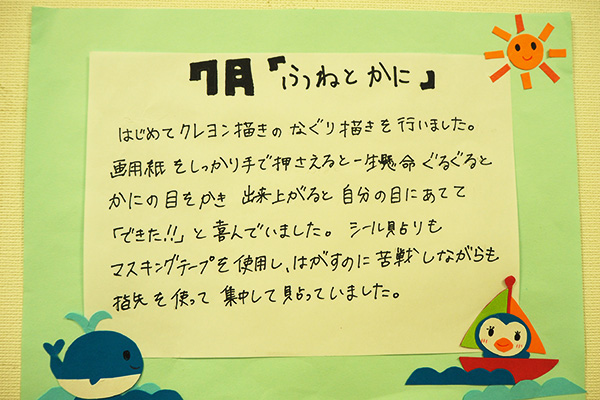 7月「ふねとかに」
はじめてクレヨン描きのなぐり描きを行いました。
画用紙をしっかり手で押さえると一生懸命ぐるぐると
かにの目をかき 出来上がると自分の目にあてて
「できた!!」と喜んでいました。シール貼りも
マスキングテープを使用し、はがすのに苦戦しながらも
指先を使って集中して貼っていました。